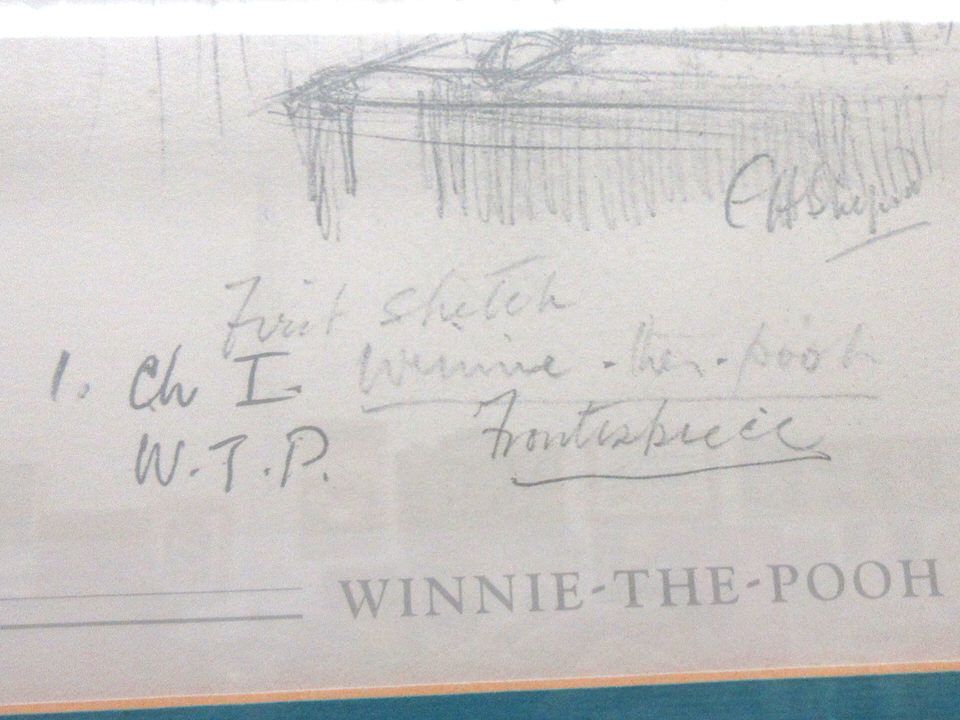 EHShepard
First sketch
1. Ch I. Winnie-the-pooh
W.T.P. Frontispiece
WINNIE-THE-POOH